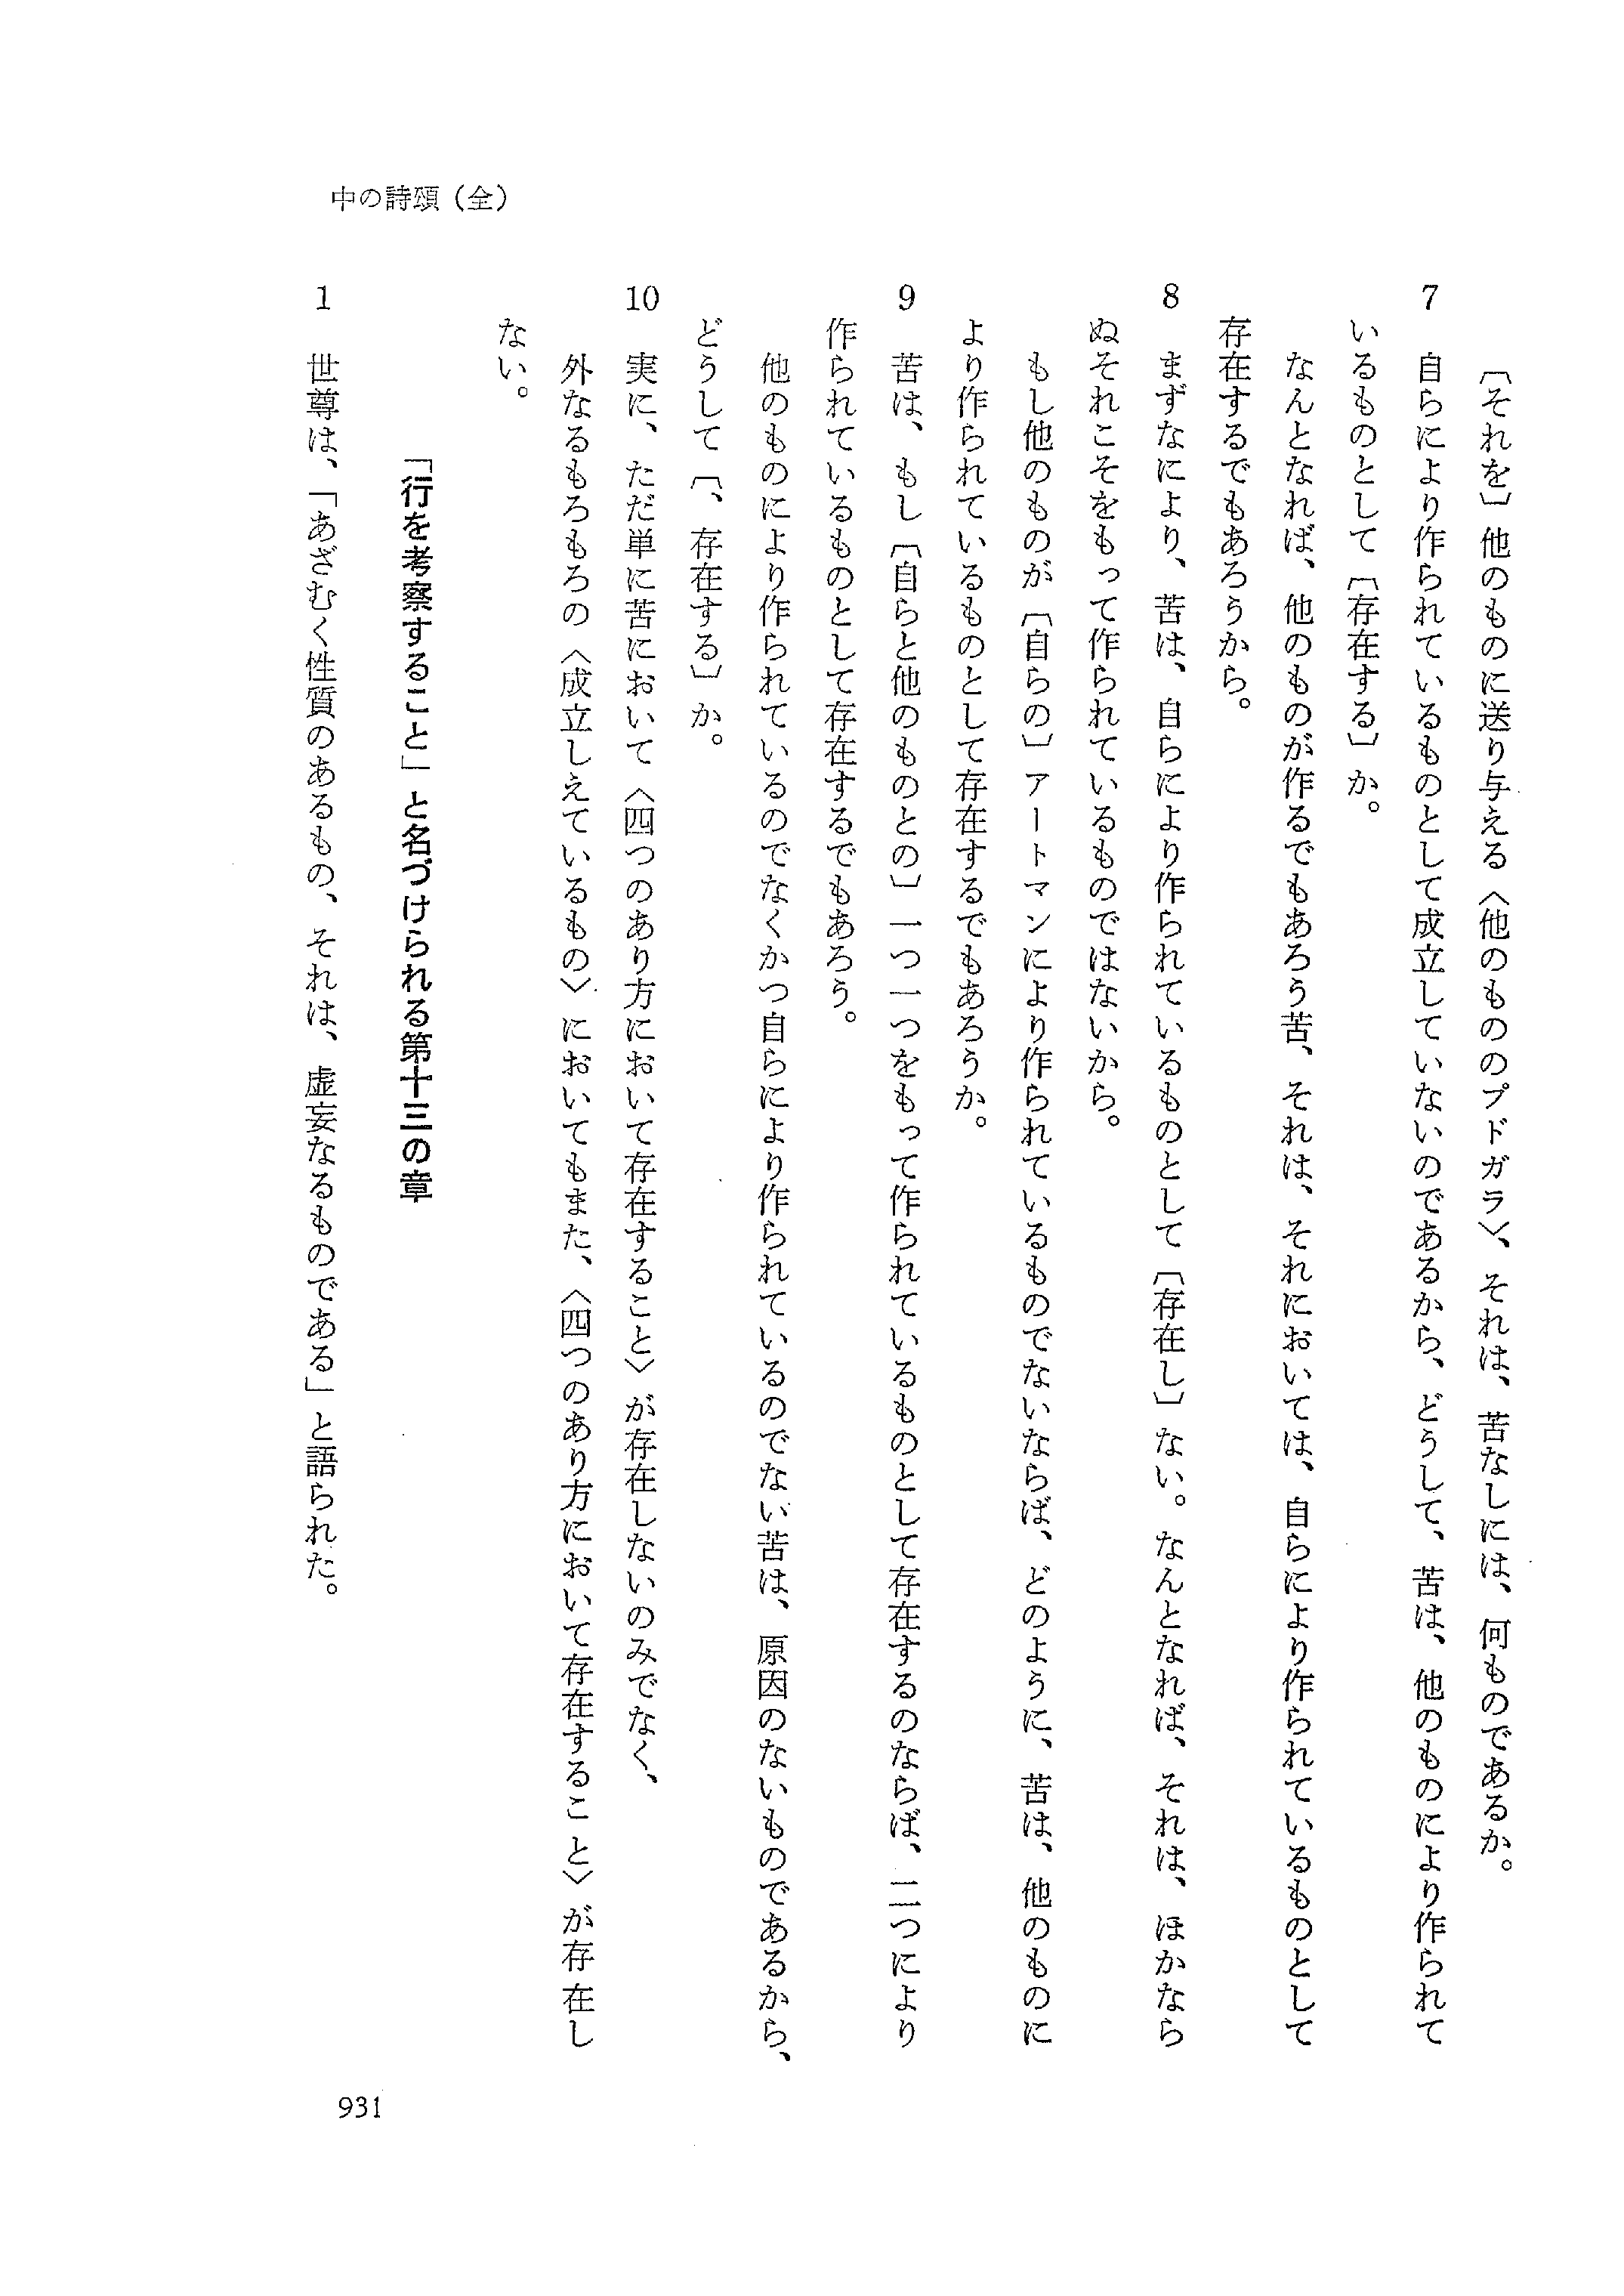 中の詩頌（全）
〔それを〕他のものに送り与える〈他のもののプドガラ〉、それは、苦なしには、何ものであるか。
7　自らにより作られているものとして成立していないのであるから、どうして、苦は、他のものにより作られて
いるものとして〔存在する〕か。
なんとなれば、他のものが作るでもあろう苦、それは、それにおいては、自らにより作られているものとして
存在するでもあろうから。
8　まずなにより、苦は、自らにより作られているものとして〔存在し〕ない。なんとなれば、それは、ほかなら
ぬそれこそをもって作られているものではないから。
もし他のものが〔自らの〕アートマンにより作られているものでないならば、どのように、苦は、他のものに
より作られているものとして存在するでもあろうか。
9　苦は、もし〔自らと他のものとの〕一つ一つをもって作られているものとして存在するのならば、二つにより
作られているものとして存在するでもあろう。
他のものにより作られているのでなくかつ自らにより作られているのでない苦は、原因のないものであるから、
どうして〔、存在する〕か。
10　実に、ただ単に苦において〈四つのあり方において存在すること〉が存在しないのみでなく、
外なるもろもろの〈成立しえているもの〉においてもまた、〈四つのあり方において存在すること〉が存在し
ない。
「行を考察すること」と名づけられる第十三の章
1　世尊は、「あざむく性質のあるもの、それは、虚妄なるものである」と語られた。
931